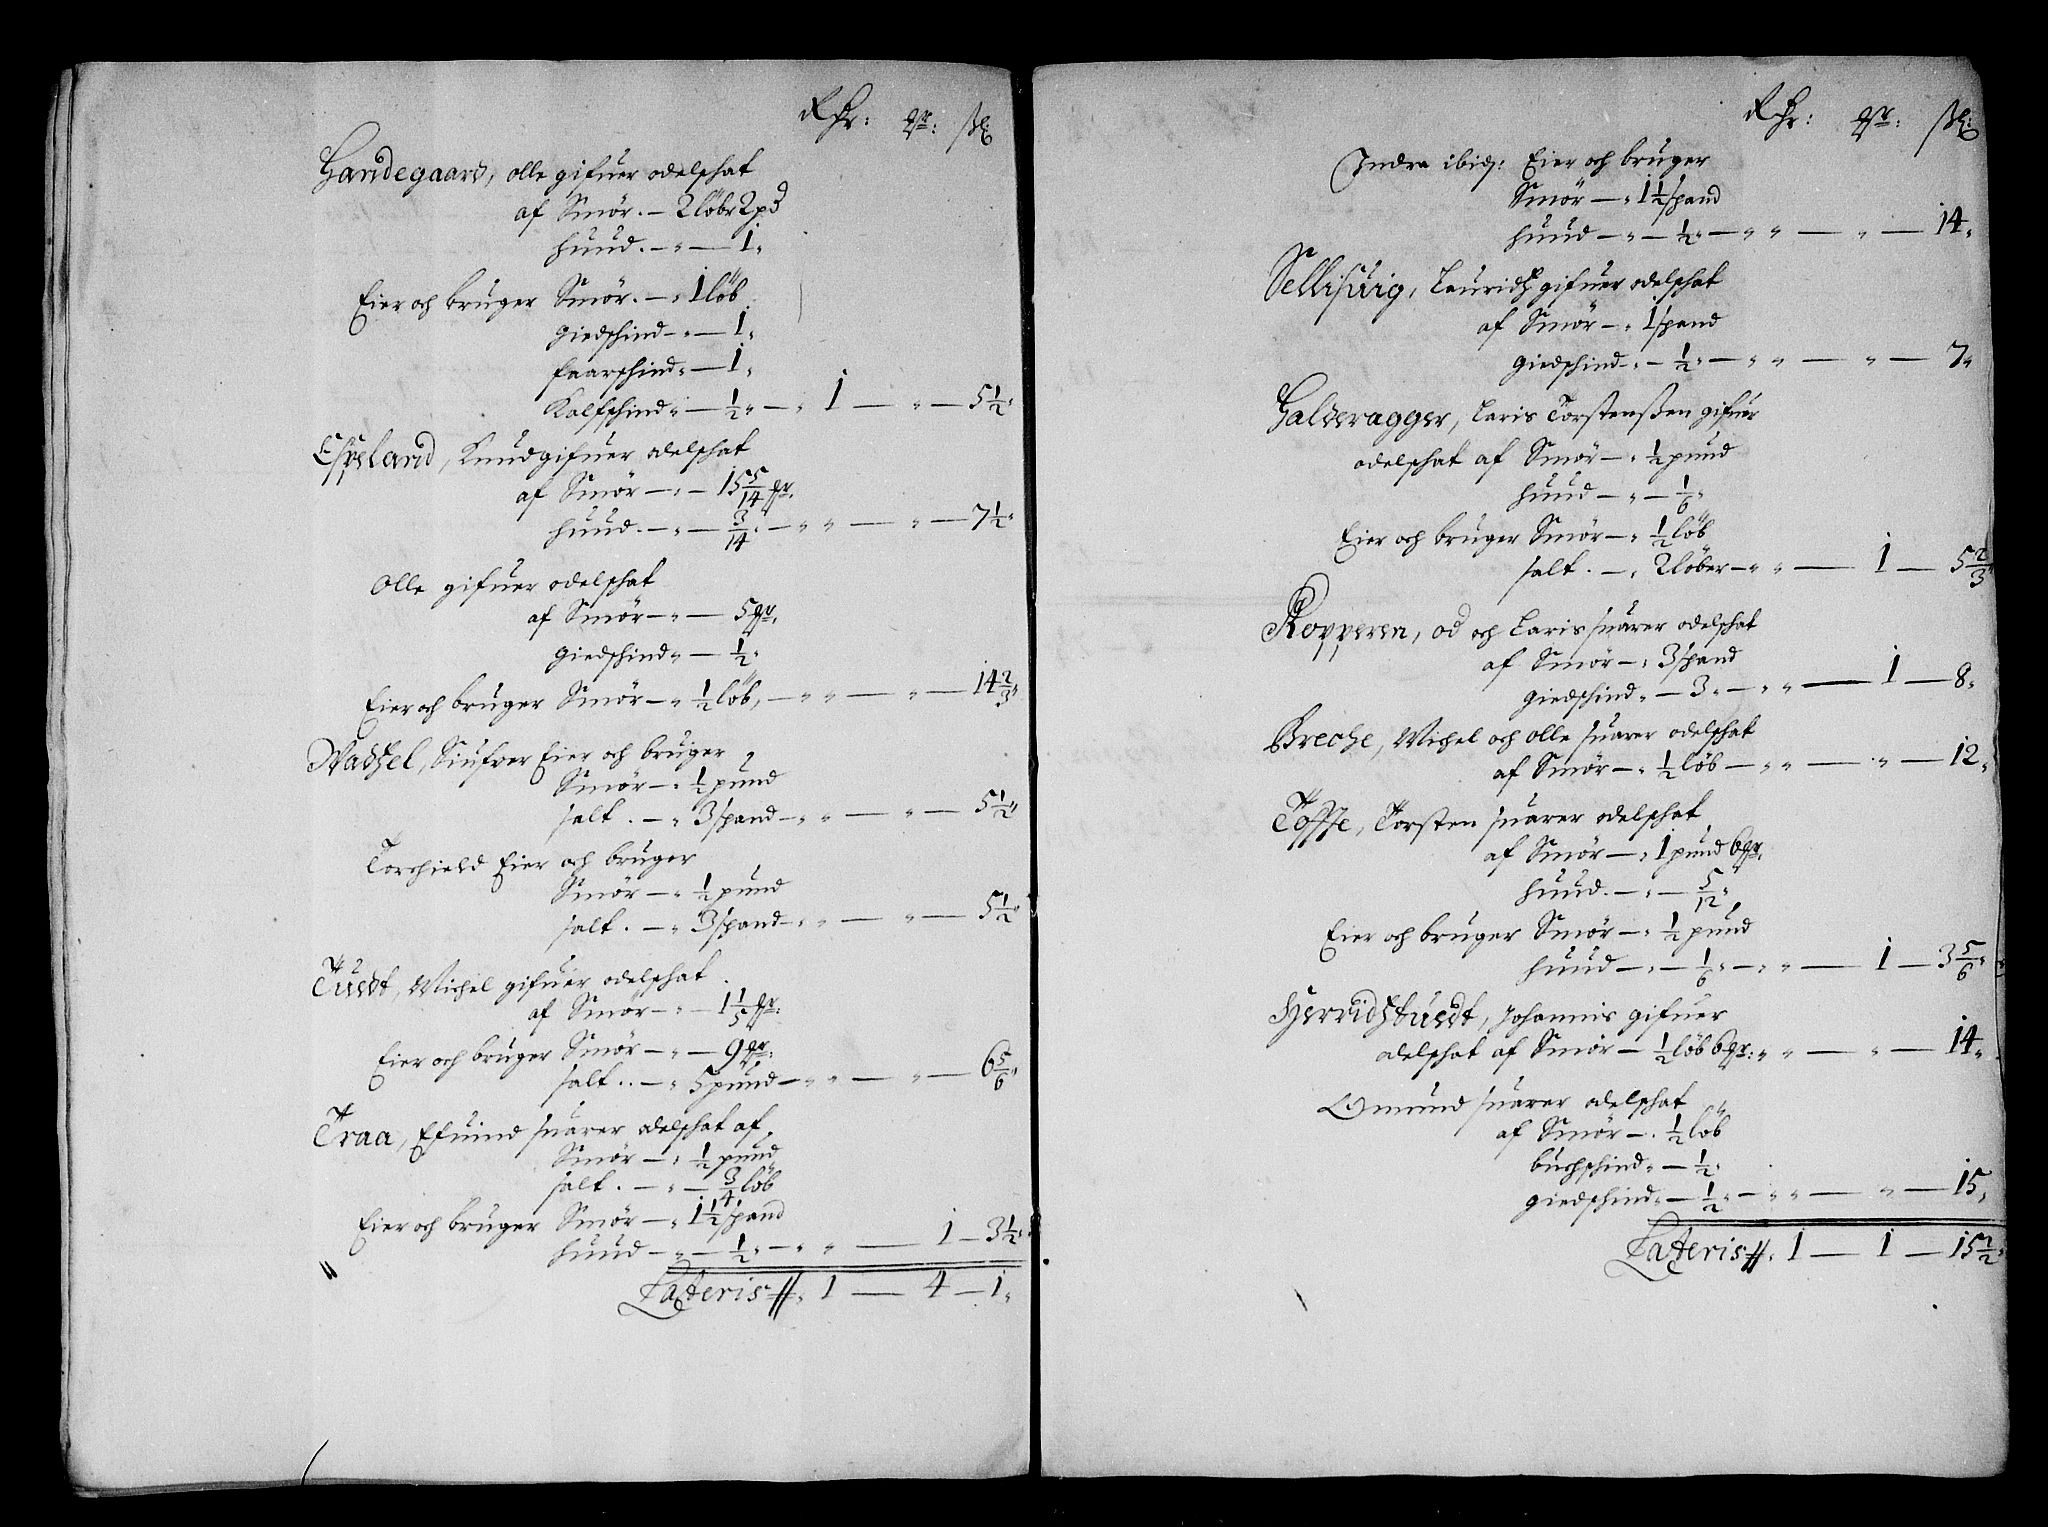 Rdr: qr: sk:
Handegaard, olle gifuer odelschat
af Smör. — 2 löbr 2 pd
huud. — „ — 1„
Eier och bruger Smör. — „ 1 löb
giedschind — „ — 1„
faarschind „ — 1„
Kalfschind „ — ½ „ — „ 1 — „ — 5½„
Espeland, Knud gifuer odelschat
af Smör — „ — 15 5/14 qr.
huud. — „ — 3/14 „ — „ „ — „ — 7½„
Olle gifuer odelschat
af Smör — „ — 5 qr.
giedschind „ — ½„
Eier och bruger Smör — „ ½ löb, — „ „ — „ — 14⅔„
Siufver Eier och bruger
Smör — „ ½ pund
salt . — „ 3 spand — „ „ — „ — 5½„
Torchield Eier och bruger
Smör — „ ½ pund
salt . — „ 3 spand — „ „ — „ — 5½„
Tuedt, Michel gifuer odelschat
af Smör — „ — 1 1/5 qr:
Eier och bruger Smör — „ — 9 qr:
salt .. — „ 5 pund — „ „ — „ — 6⅚„
Traa, Efuind suarer odelschat af
Smör — „ ½ pund
salt . — „ — ¾ löb
Eier och bruger Smör — „ 1½ spand
huud — „ — ½ „ — „ „ — 1 — 3½„
Lateris //. 1 — 4 — 1„
Rdr: qr: sk:
Indra ibid: Eier och bruger
Smör — „ 1½ spand
huud — „ — ½ „ — „ „ — „ — 14„
Sellisuig, Lauridtz gifuer odelschat
af Smör — „ 1 spand
giedschind „ — ½ „ — „ „ — „ — 7„
Galderagger, Laris Torstenssen gifuer
odelschat af Smör — „ ½ pund
huud — „ — 1/6„
Eier och bruger Smör — „ ½ löb
salt . — „ 2 löber — „ „ — 1 — 5⅔„
Kopperen, od och Laris suarer odelschat
af Smör — „ 3 spand
giedschind „ — 3 „ — „ „ — 1 — 8„
Breche, Michel och olle suarer odelschat
af Smör — „ ½ löb — „ „ — „ — 12„
Toffte, Torsten suarer odelschat
af Smör — „ 1 pund 6 qr.
huud. — „ — 5/12„
Eier och bruger Smör — „ ½ pund
huud — „ — 1/6 „ — „ „ — 1 — 3⅚„
Johannis gifuer
odelschat af Smör — ½ löb 6 qr: „ „ — „ — 14„
Omund suarer odelschat
af Smör — . ½ löb
buchschind „ — ½„
giedschind „ — ½ „ — „ „ — „ — 15„
Lateris //. 1 — 1 — 15½„